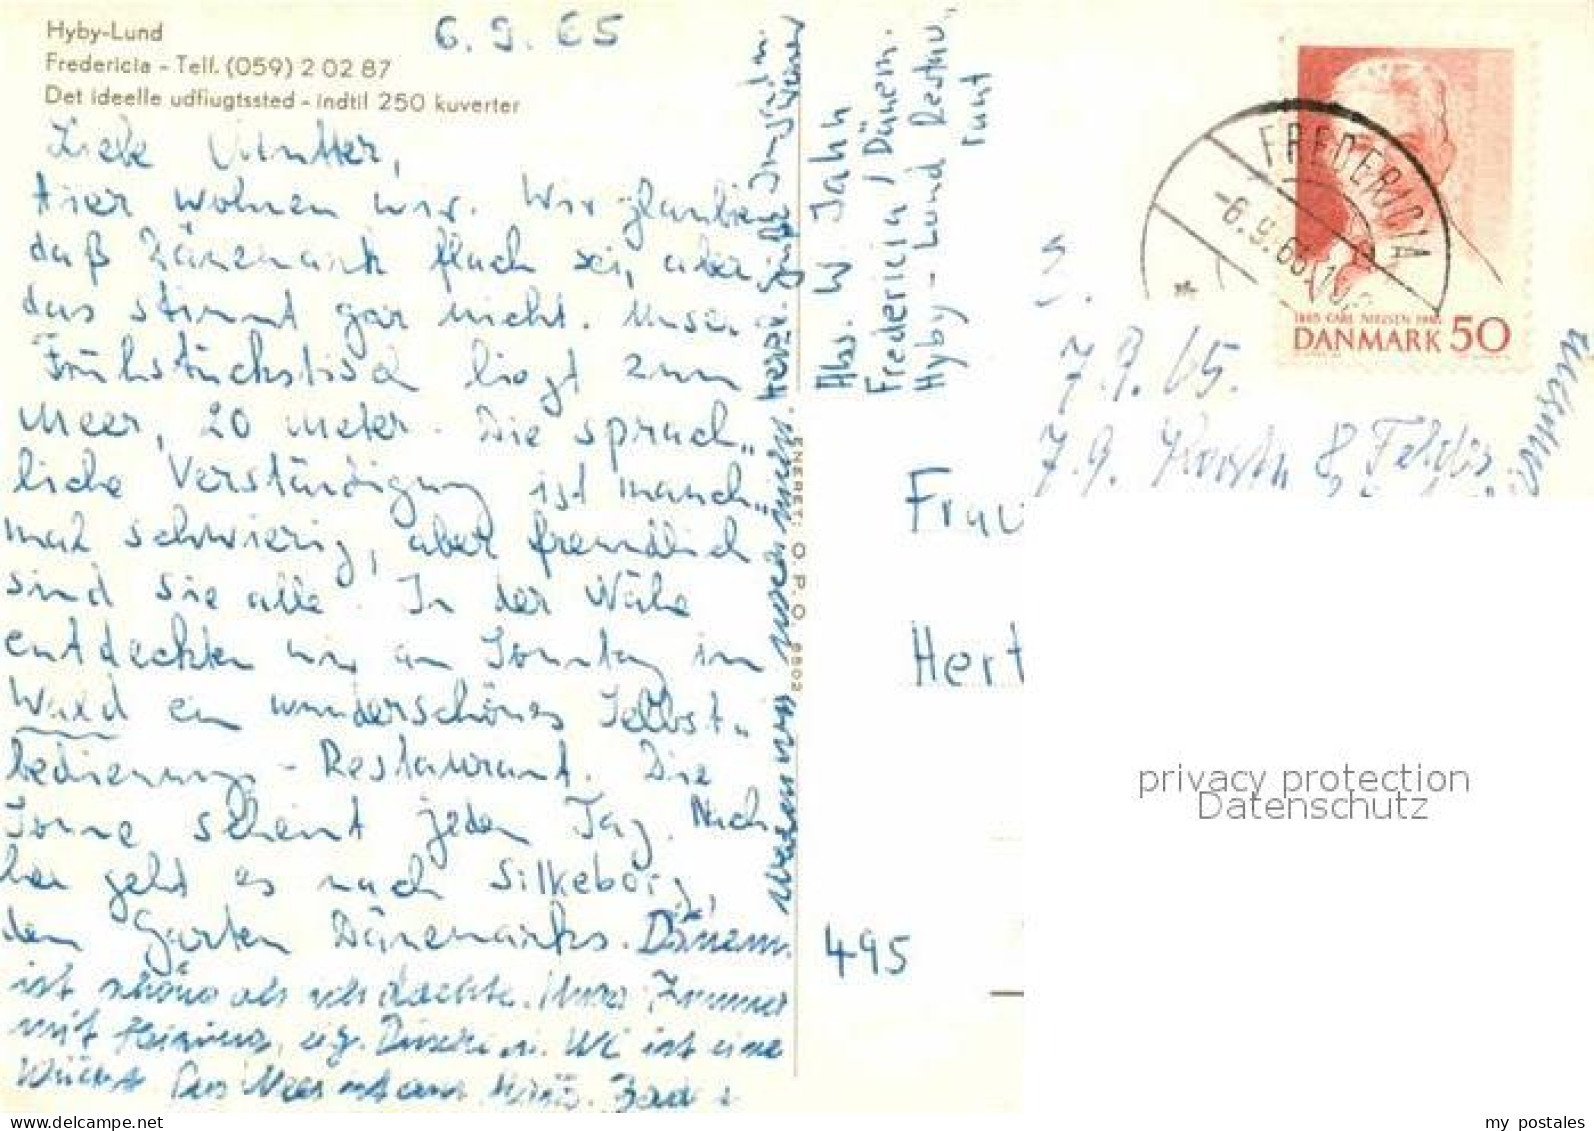 Hyby-Lund
Fredericia - Telf. (059) 2 02 87
Det ideelle udflugtssted - indtil 250 kuverter
6.9.65
Liebe Mutter,
hier wohnen wir. Wir glaubten
daß Dänemark flach sei, aber
das stimmt gar nicht. Unser
Frühstückstisch liegt zum
Meer, 20 Meter. Die sprach„
liche Verständigung ist manch„
mal schwierig, aber freundlich
sind sie alle. In der Nähe
entdeckten wir am Sonntag im
Wald ein wunderschönes Selbst„
bedienungs-Restaurant. Die
Sonne scheint jeden Tag. Nach
her geht es nach Silkeborg,
dem Garten Dänemarks. Dänem.
ist schöner als ich dachte. Unser Zimmer
mit
ist eine
Das Meer ist
ENERET: O. P. O. 9502
Abs. W. Jahn
Fredericia / Dänem.
Hyby-Lund Restau„
rant
FREDERICIA
-6.9.65
1865 CARL NIELSEN 1965
DANMARK 50
7.9.65.
7.9.
Frau
Hert
495
privacy protection
Datenschutz
my postales